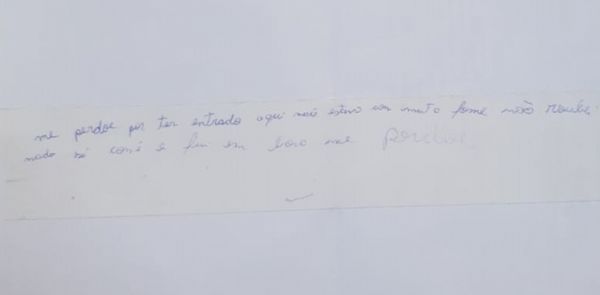 me perdoe por ter entrado aqui mais estava com muto fome não roubei
nada só comi e fui em bora me perdoe